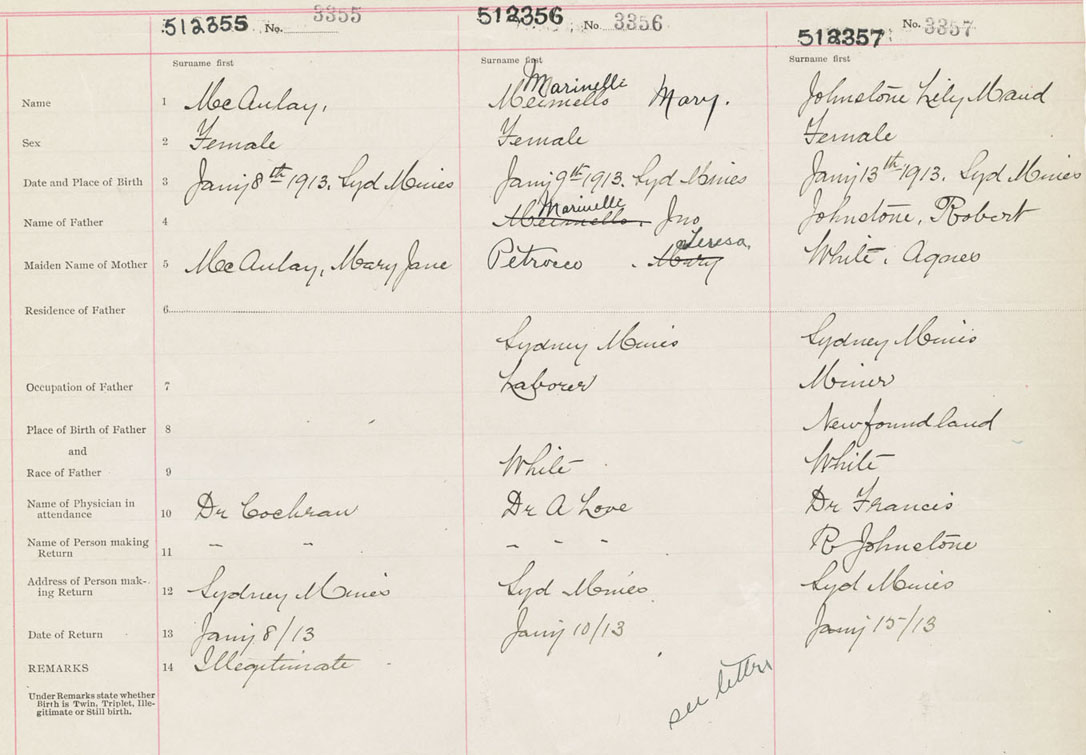 512355 No. 3355 512356 No. 3356 512357 No. 3357
Surname first Surname first Surname first
Marinelli
Name 1 McAulay, Mary. Johnstone Lily Maud
Sex 2 Female Female Female
Date and Place of Birth 3 Jany 8th 1913. Syd Mines Jany 9th 1913. Syd Mines Jany 13th 1913. Syd Mines
Marinelli
Name of Father 4 Jno Johnstone, Robert
Teresa,
Maiden Name of Mother 5 McAulay, Mary Jane Petrocco . Mary White, Agnes
Residence of Father 6
Sydney Mines Sydney Mines
Occupation of Father 7 Laborer Miner
Place of Birth of Father 8 Newfoundland
and
Race of Father 9 White White
Name of Physician in
attendance 10 Dr Cochran Dr A Love Dr Francis
Name of Person making
Return 11 - - - - - R Johnstone
Address of Person mak-
ing Return 12 Sydney Mines Syd Mines Syd Mines
Date of Return 13 Jany 8/13 Jany 10/13 Jany 15/13
REMARKS 14 Illegitimate
see letters
Under Remarks state whether
Birth is Twin, Triplet, Ille-
gitimate or Still birth.